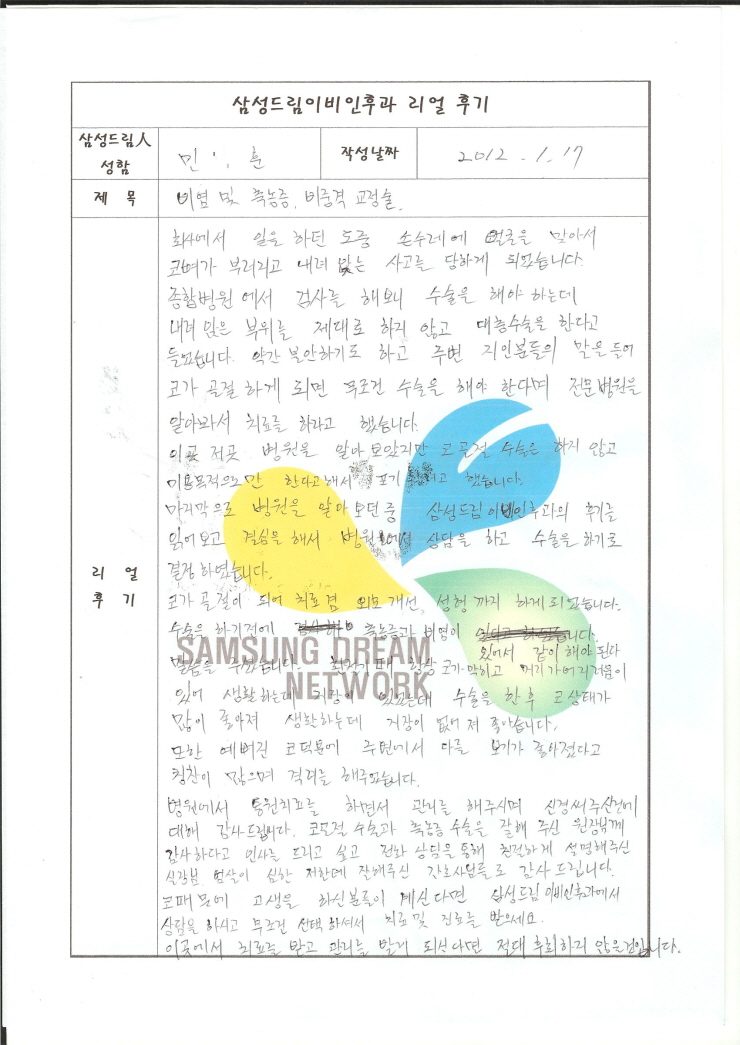 삼성드림이비인후과 리얼 후기
삼성드림人
성함
민 훈
작성날짜
2012. 1. 17
제 목
비염 및 축농증, 비중격 교정술.
리 얼
후 기
회사에서 일을 하던 도중 손수레에 얼굴을 맞아서
코뼈가 부러지고 내려 앉는 사고를 당하게 되었습니다.
종합병원에서 검사를 해보니 수술을 해야 하는데
내려 앉은 부위를 제대로 하지 않고 대충수술을 한다고
들었습니다. 약간 불안하기도 하고 주변 지인분들의 말을 들어
코가 골절 하게 되면 무조건 수술을 해야 한다며 전문병원을
알아봐서 치료를 하라고 했습니다.
이곳 저곳 병원을 알아 보았지만 코골절 수술은 하지 않고
미용목적으로만 한다고해서 포기 하려고 했습니다.
마지막으로 병원을 알아 보던중 삼성드림이비인후과의 후기를
읽어보고 결심을 해서 병원에서 상담을 하고 수술을 하기로
결정 하였습니다.
코가 골절이 되어 치료 겸 외모 개선, 성형 까지 하게 되었습니다.
수술을 하기전에 축농증과 비염이
있어서 같이 해야 된다
말씀을 주셨습니다. 항상 코가 막히고 머리가 어지러움이
있어 생활하는데 지장이 있었는데 수술을 한 후 코 상태가
많이 좋아져 생활하는데 지장이 없어져 좋았습니다.
또한 예뻐진 코덕분에 주변에서 다들 보기가 좋아졌다고
칭찬이 많으며 격려를 해주었습니다.
병원에서 통원치료를 하면서 관리를 해주시며 신경써주신것에
대해 감사드립니다. 코골절 수술과 축농증 수술을 잘해 주신 원장님께
감사하다고 인사를 드리고 싶고 전화 상담을 통해 친절하게 설명해주신
실장님, 엄살이 심한 저한테 잘해주신 간호사님들도 감사 드립니다.
코때문에 고생을 하신분들이 계신다면 삼성드림이비인후과에서
상담을 하시고 무조건 선택 하셔서 치료 및 진료를 받으세요.
이곳에서 치료를 받고 관리를 받게 되신다면 절대 후회하지 않을것입니다.
SAMSUNG DREAM
NETWORK